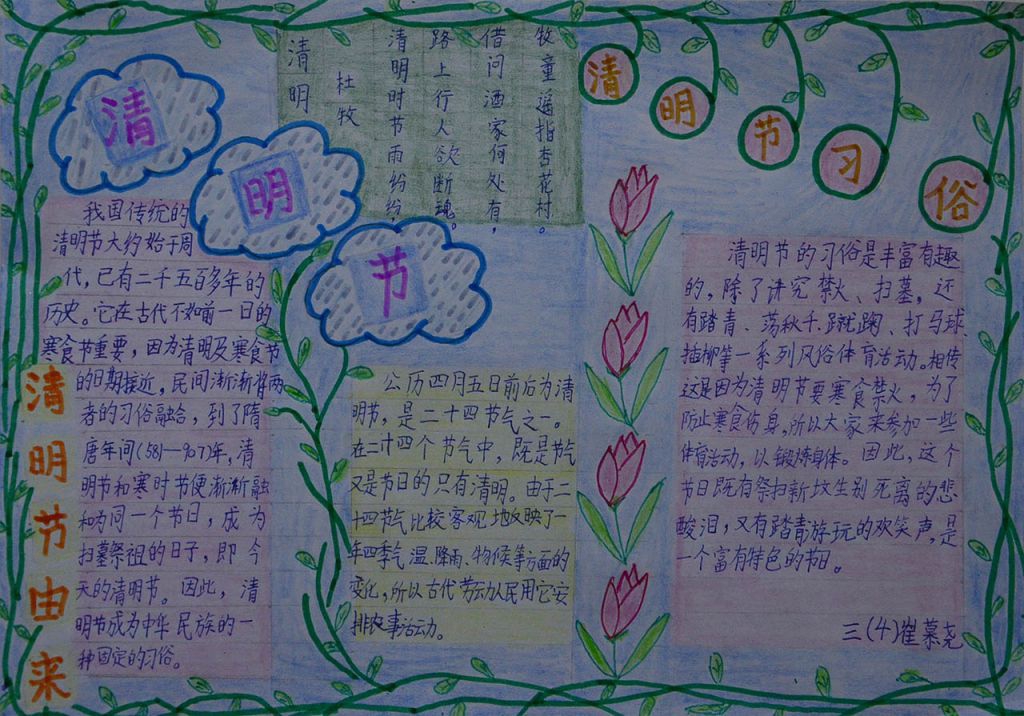 清
明
节
清明
杜牧
清明时节雨纷纷,
路上行人欲断魂。
借问酒家何处有,
牧童遥指杏花村。
清
明
节
习
俗
清明节由来
我国传统的
清明节大约始于周
代,已有二千五百多年的
历史。它在古代不如前一日的
寒食节重要,因为清明及寒食节
的日期接近,民间渐渐将两
者的习俗融合,到了隋
唐年间(581—907)年,清
明节和寒时节便渐渐融
和为同一个节日,成为
扫墓祭祖的日子,即今
天的清明节。因此,清
明节成为中华民族的一
种固定的习俗。
公历四月五日前后为清
明节,是二十四节气之一。
在二十四个节气中,既是节气
又是节日的只有清明。由于二
十四节气比较客观地反映了一
年四季气温、降雨、物候等方面的
变化,所以古代劳动人民用它安
排农事活动。
清明节的习俗是丰富有趣
的,除了讲究禁火、扫墓,还
有踏青、荡秋千、蹴鞠、打马球、
插柳等一系列风俗体育活动。相传
这是因为清明节要寒食禁火,为了
防止寒食伤身,所以大家来参加一些
体育活动,以锻炼身体。因此,这个
节日既有祭扫新坟生别死离的悲
酸泪,又有踏青游玩的欢笑声,是
一个富有特色的节日。
三(4)崔慕尧